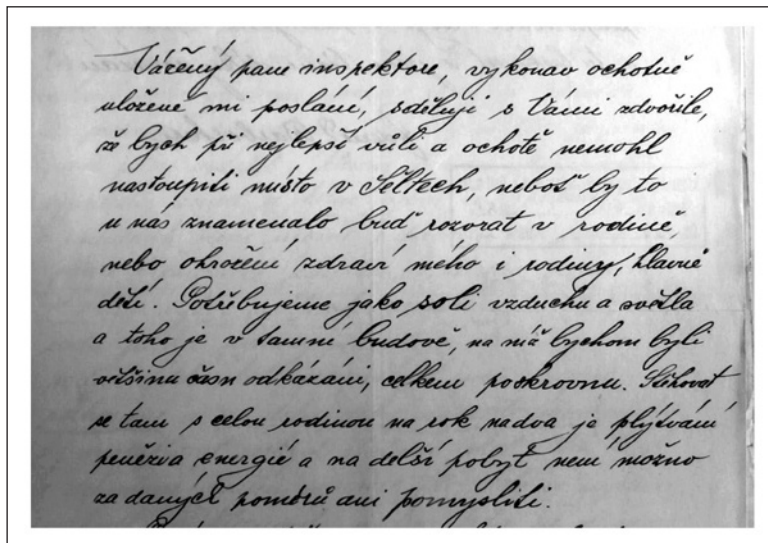 Vážený pane inspektore, vykonav ochotně
uložené mi poslání, sděluji s Vámi zdvořile,
že bych při nejlepší vůli a ochotě nemohl
nastoupiti místo v Seltech, neboť by to
u nás znamenalo buď rozvrat v rodině,
nebo ohrožení zdraví mého i rodiny, hlavně
dětí. Potřebujeme jako soli vzduchu a světla
a toho je v tamní budově, na niž bychom byli
většinu času odkázáni, celkem poskrovnu. Stěhovat
se tam s celou rodinou na rok nadva je plýtvání
peněz a energií a na delší pobyt není možno
za daných poměrů ani pomysliti.